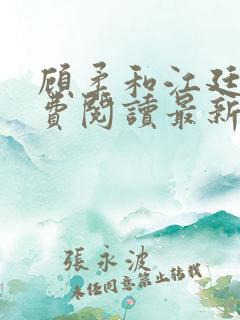 顾柔和江廷
費閱讀最新
張永波
未经同意禁止转载